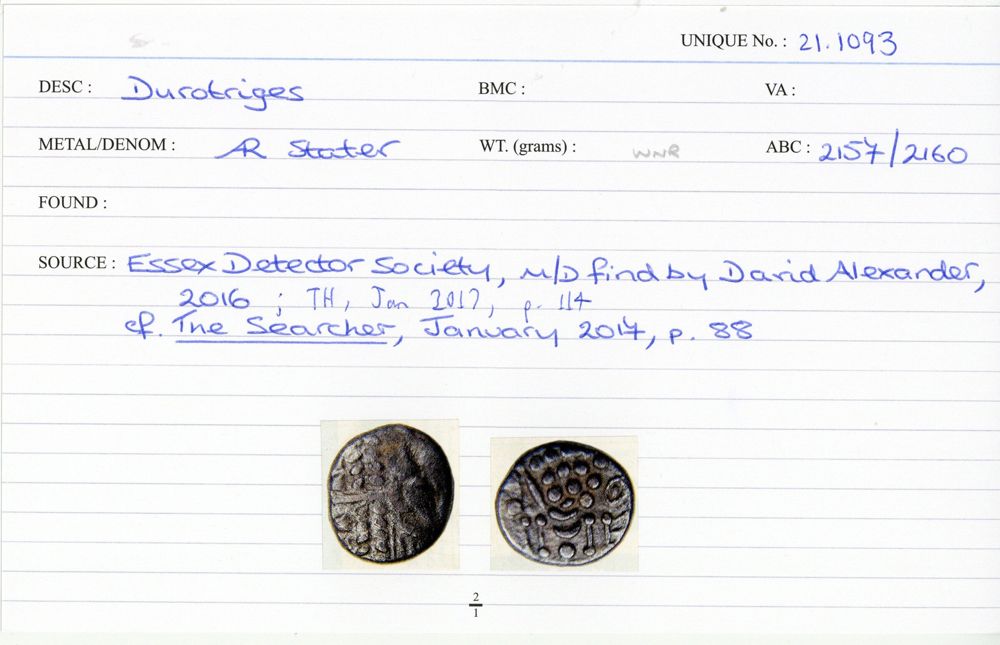 UNIQUE No. : 21.1093
DESC : Durotriges BMC : VA :
METAL/DENOM : AR Stater WT. (grams) : WNR ABC : 2157/2160
FOUND :
SOURCE : Essex Detector Society, M/D find by David Alexander,
2016 ; TH, Jan 2017, p. 114
cf. The Searcher, January 2017, p. 88
2
1